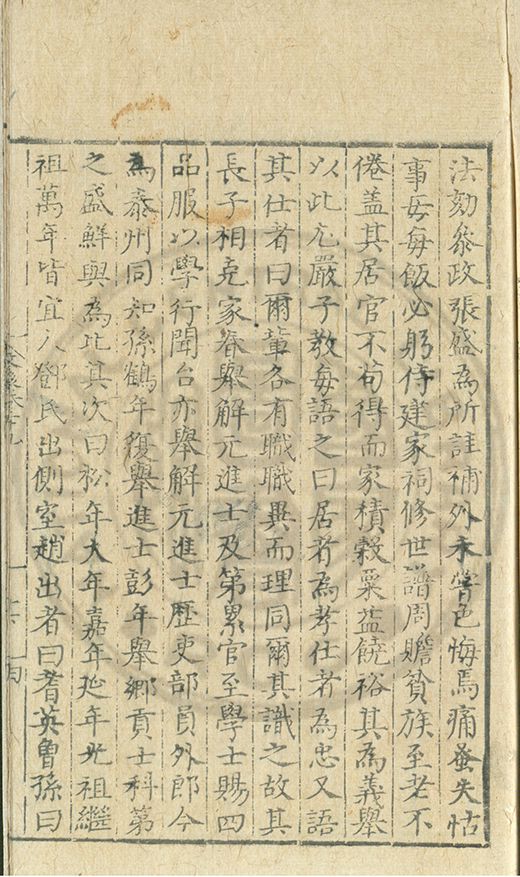 法劾叅政張盛為所註補外未嘗色悔焉痛蚤失怙
事母每飯必躬侍建家祠修世譜周贍貧族至老不
倦盖其居官不苟得而家積穀粟益饒裕其為義舉
以此尤嚴子教每語之曰居者為孝仕者為忠又語
其仕者曰爾輩各有職職異而理同爾其識之故其
長子相堯家眷舉解元進士及第累官至學士賜四
品服以學行聞台亦舉解元進士歷吏部員外郎今
為泰州同知孫鶴年復舉進士彭年舉鄉貢士科第
之盛鮮與為比其次曰松年大年嘉年延年光祖繼
祖萬年皆宜人鄧氏出側室趙出者曰耆英曾孫曰